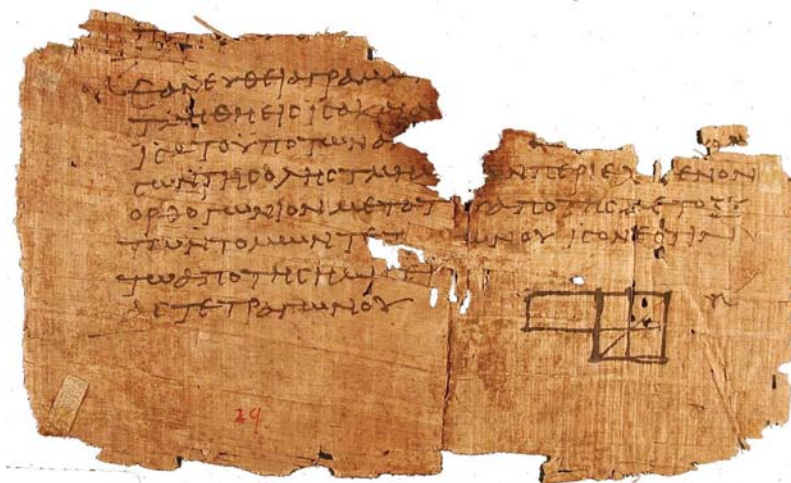 ΕΑΝΕΥΘΕΙΑΓΡΑΜΜ
ΤΜΗΘΗΕΙϹΙϹΑΚΑΙΑ
ΙϹΑΤΟΥΠΟΤΩΝΑ
ϹΩΝΤΗϹΟΛΗϹΤΜΗΜ ΝΠΕΡΙΕΧ ΕΝΟΝ
ΟΡΘΟΓΩΝΙΟΝΜΕΤΟΥΤ ΑΠΟΤΗϹΜΕΤΟΞΥ
ΤΩΝΤΟΜΩΝΤΕΤ ΩΝΟΥΙϹΟΝΕϹΤΙΝ
ΤΩΑΠΟΤΗϹΗΜΙϹΕΙ
ΑϹΤΕΤΡΑΓΩΝΟΥ
29